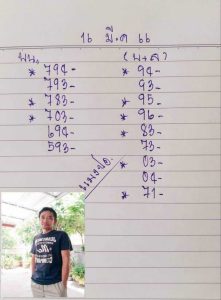 16 มี.ค 66
บน.
* 794-
793-
* 783-
* 703-
694-
593-
(บ+ล)
* 94-
93-
* 95-
* 96-
* 83-
73-
* 03-
04-
* 71-